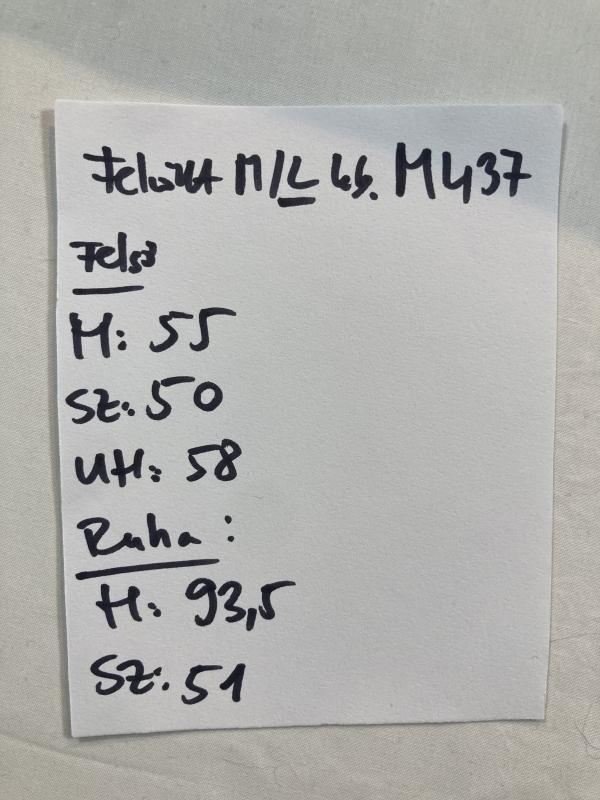 Felnőtt M/L kb. M437
Felső
H: 55
SZ: 50
UH: 58
Ruha:
H: 93,5
SZ: 51